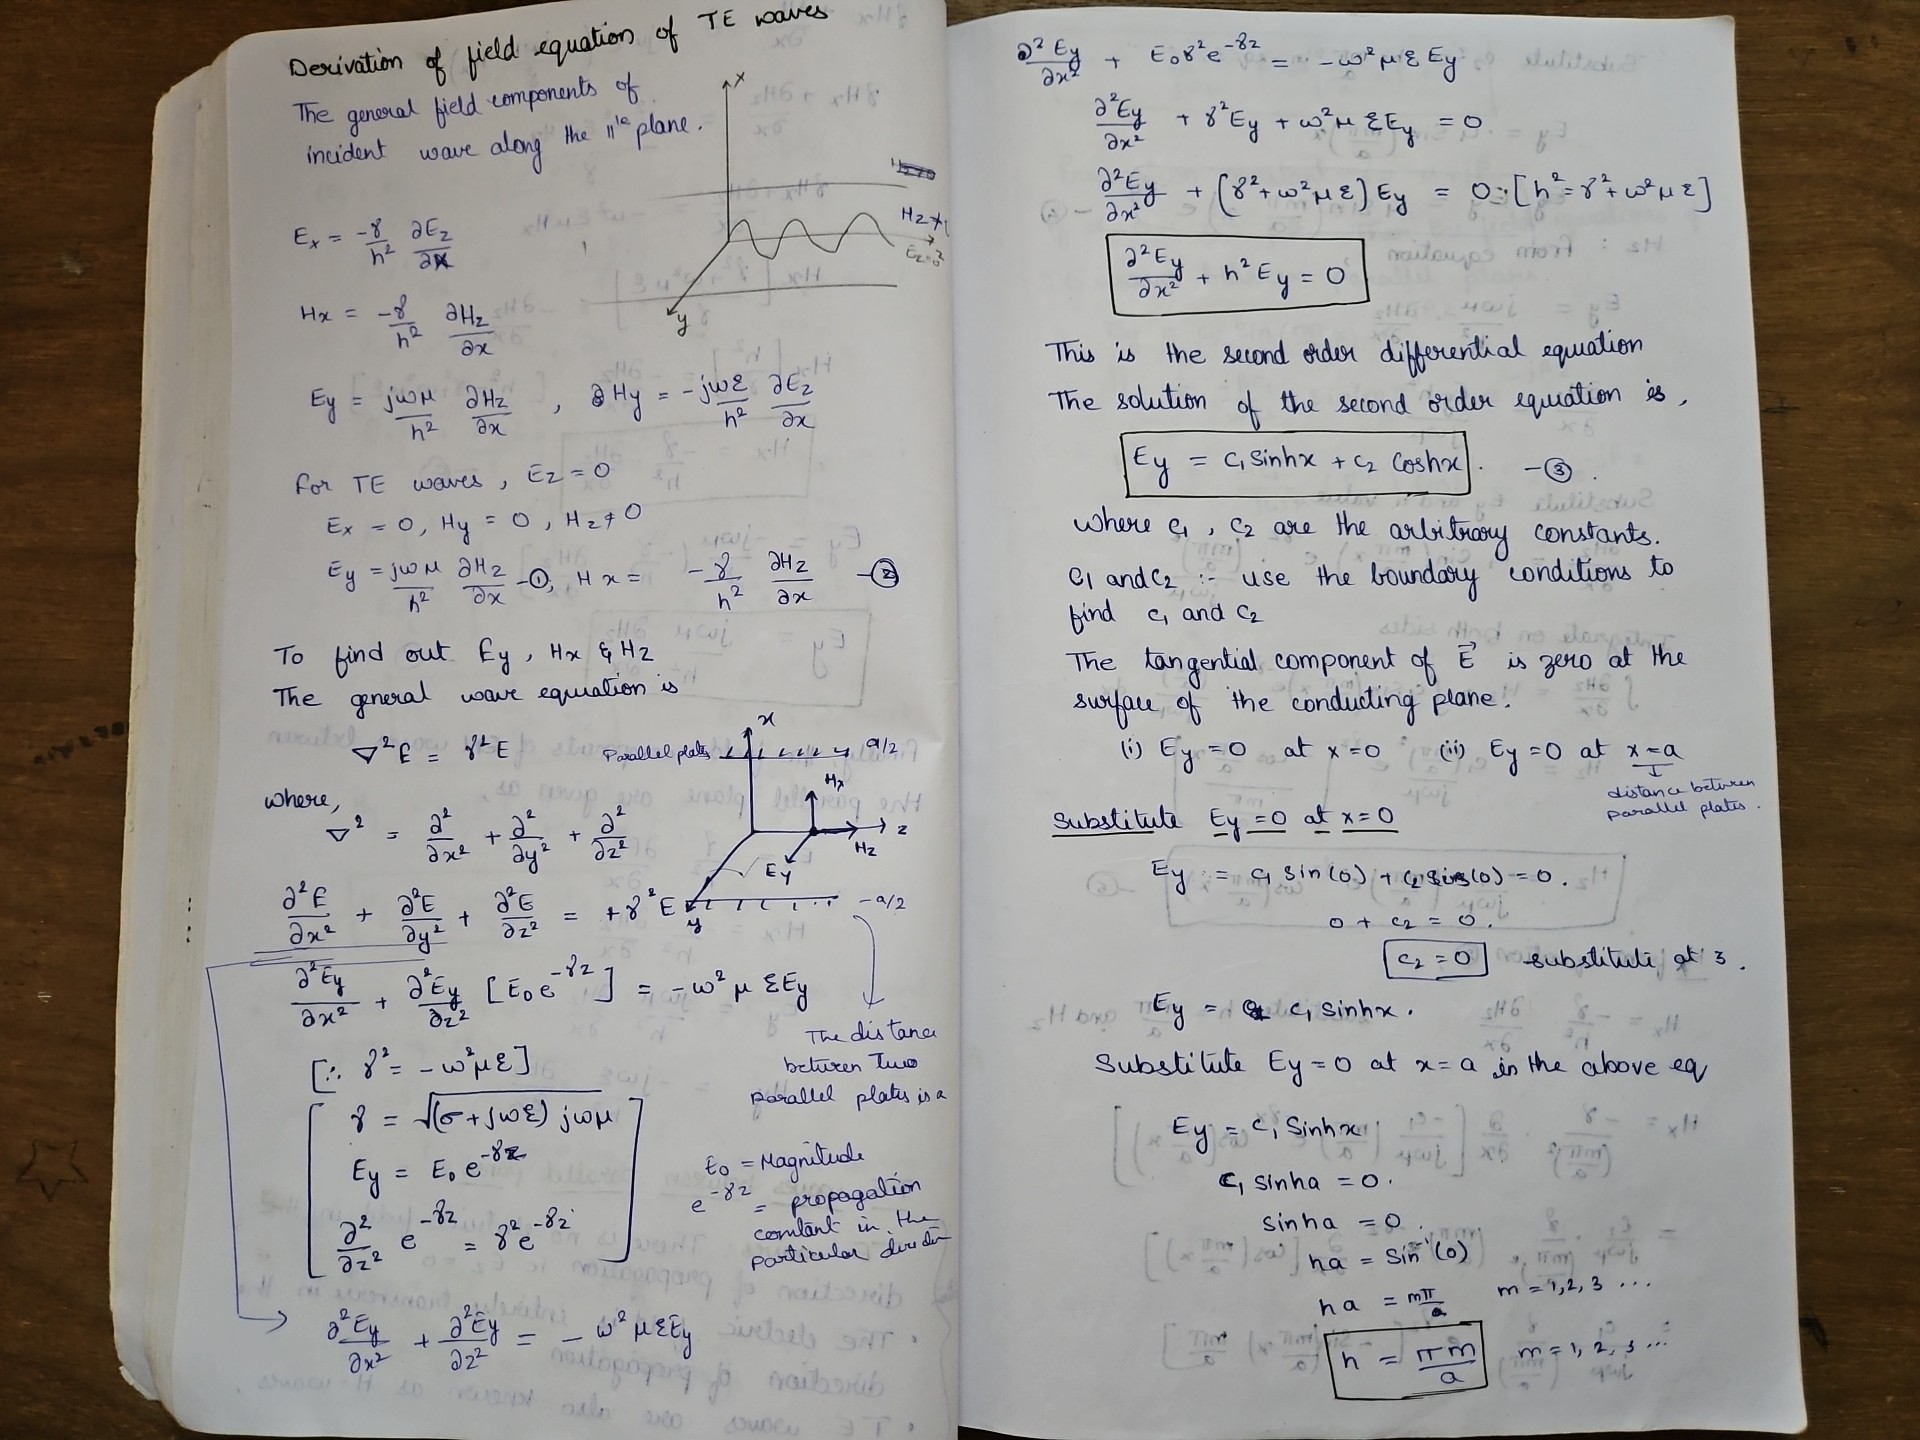 Derivation of field equation of TE waves
The general field components of
incident wave along the 11le plane.
x
Hz≠
Ez=0
z
y
Ex = -γ/h² ∂Ez/∂x
Hx = -γ/h² ∂Hz/∂x
Ey = jωμ/h² ∂Hz/∂x , Hy = -jωε/h² ∂Ez/∂x
for TE waves, Ez = 0
Ex = 0, Hy = 0, Hz ≠ 0
Ey = jωμ/h² ∂Hz/∂x -①, Hx = -γ/h² ∂Hz/∂x -②
To find out Ey, Hx & Hz
The general wave equation is
∇²E = γ²E
where,
∇² = ∂²/∂x² + ∂²/∂y² + ∂²/∂z²
x
Parallel plates
a/2
Hx
z
Hz
Ey
y
-a/2
∂²E/∂x² + ∂²E/∂y² + ∂²E/∂z² = +γ²E
∂²Ey/∂x² + ∂²Ey/∂z² [E₀e^-γz] = -ω²μεEy
The distance
between two
parallel plates is a
[∴ γ² = -ω²με]
γ = √(σ+jωε) jωμ
Ey = E₀e^-γz
∂²/∂z² e^-γz = γ²e^-γz
E₀ = Magnitude
e^-γz = propagation
constant in the
particular direction
∂²Ey/∂x² + ∂²Ey/∂z² = -ω²μεEy
∂²Ey/∂x² + E₀γ²e^-γz = -ω²μεEy
∂²Ey/∂x² + γ²Ey + ω²μεEy = 0
∂²Ey/∂x² + (γ²+ω²με)Ey = 0 ∵ [h²=γ²+ω²με]
∂²Ey/∂x² + h²Ey = 0
This is the second order differential equation
The solution of the second order equation is,
Ey = c₁ Sinhx + c₂ Coshx. -③.
where c₁, c₂ are the arbitrary constants.
C₁ and C₂ :- use the boundary conditions to
find c₁ and c₂
The tangential component of E⃗ is zero at the
surface of the conducting plane.
(i) Ey = 0 at x=0 (ii) Ey = 0 at x=a
distance between
parallel plates.
Substitute Ey = 0 at x=0
Ey = c₁ sin(0) + c₂ cos(0) = 0.
0 + c₂ = 0.
c₂ = 0 substitute at 3.
Ey = c₁ sinhx.
Substitute Ey = 0 at x = a in the above eq
Ey = c₁ Sinhx
C₁ sinha = 0.
sinha = 0.
ha = Sin⁻¹(0)
ha = mπ/a m = 1,2,3 ...
h = πm/a m = 1, 2, 3 ...